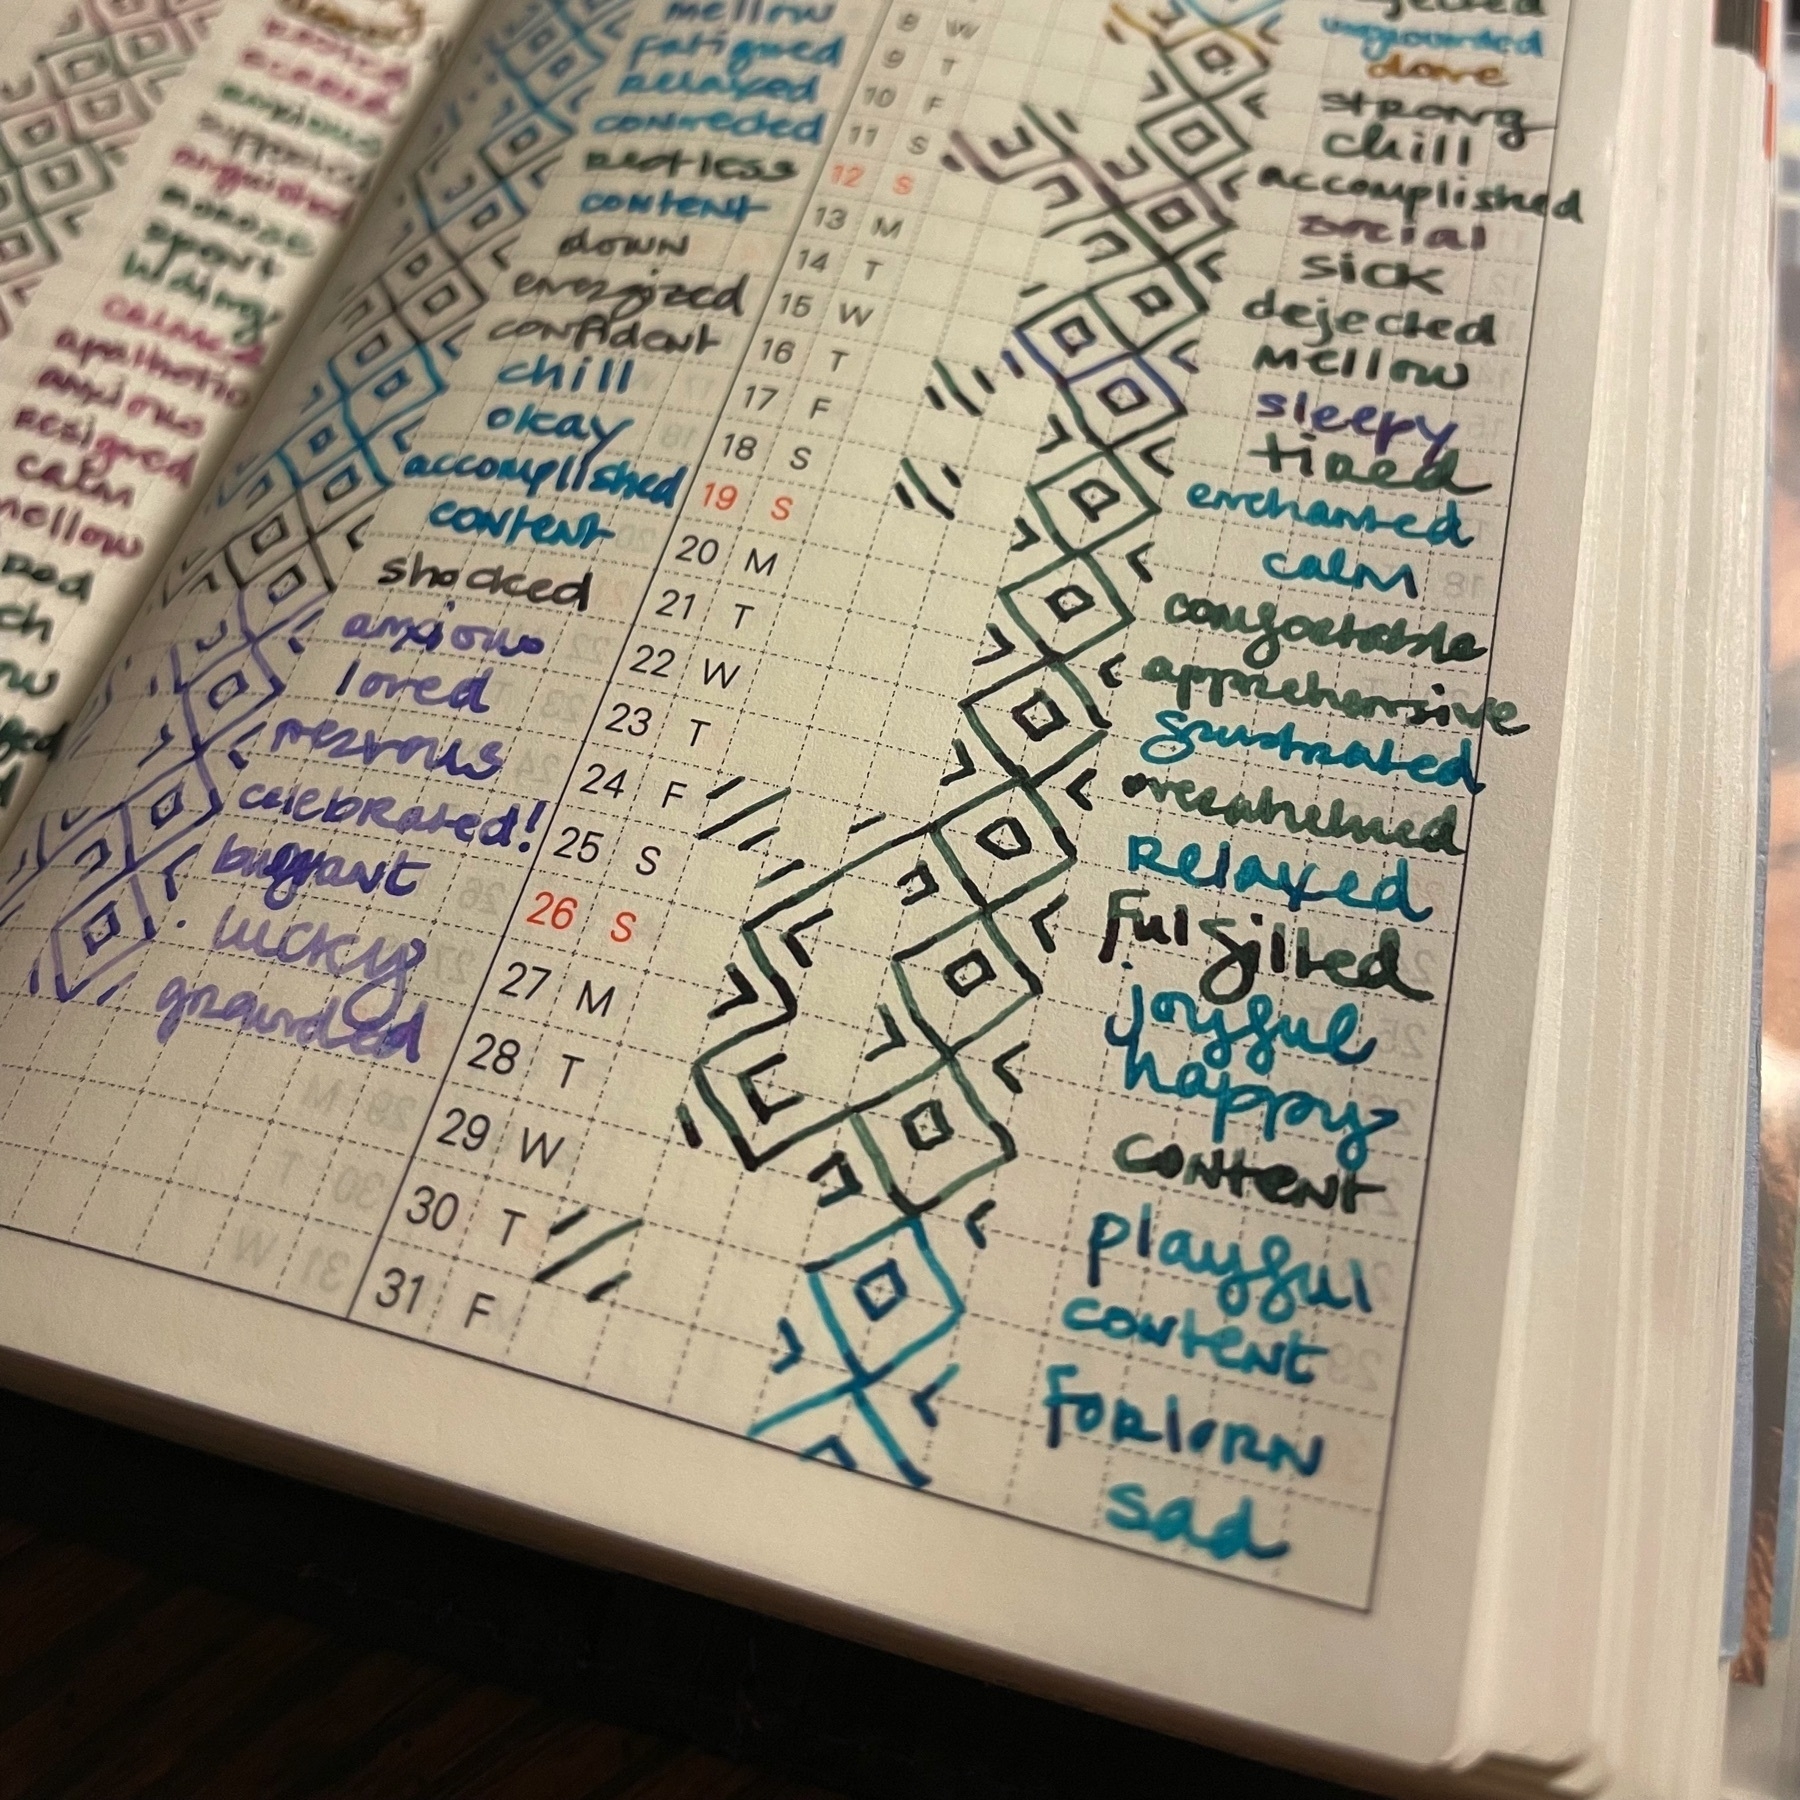 anxious
anguished
morose
spent
hiding
calmed
apathetic
anxious
resigned
calm
mellow
mellow
fatigued
relaxed
connected
restless
content
down
energized
confident
chill
okay
accomplished
content
shocked
anxious
loved
nervous
celebrated!
lucky
grounded
8 W
9 T
10 F
11 S
12 S
13 M
14 T
15 W
16 T
17 F
18 S
19 S
20 M
21 T
22 W
23 T
24 F
25 S
26 S
27 M
28 T
29 W
30 T
31 F
done
strong
chill
accomplished
social
sick
dejected
mellow
sleepy
tired
enchanted
calm
comfortable
apprehensive
frustrated
overwhelmed
Relaxed
Fulfilled
joyful
happy
content
playful
content
Forlorn
sad